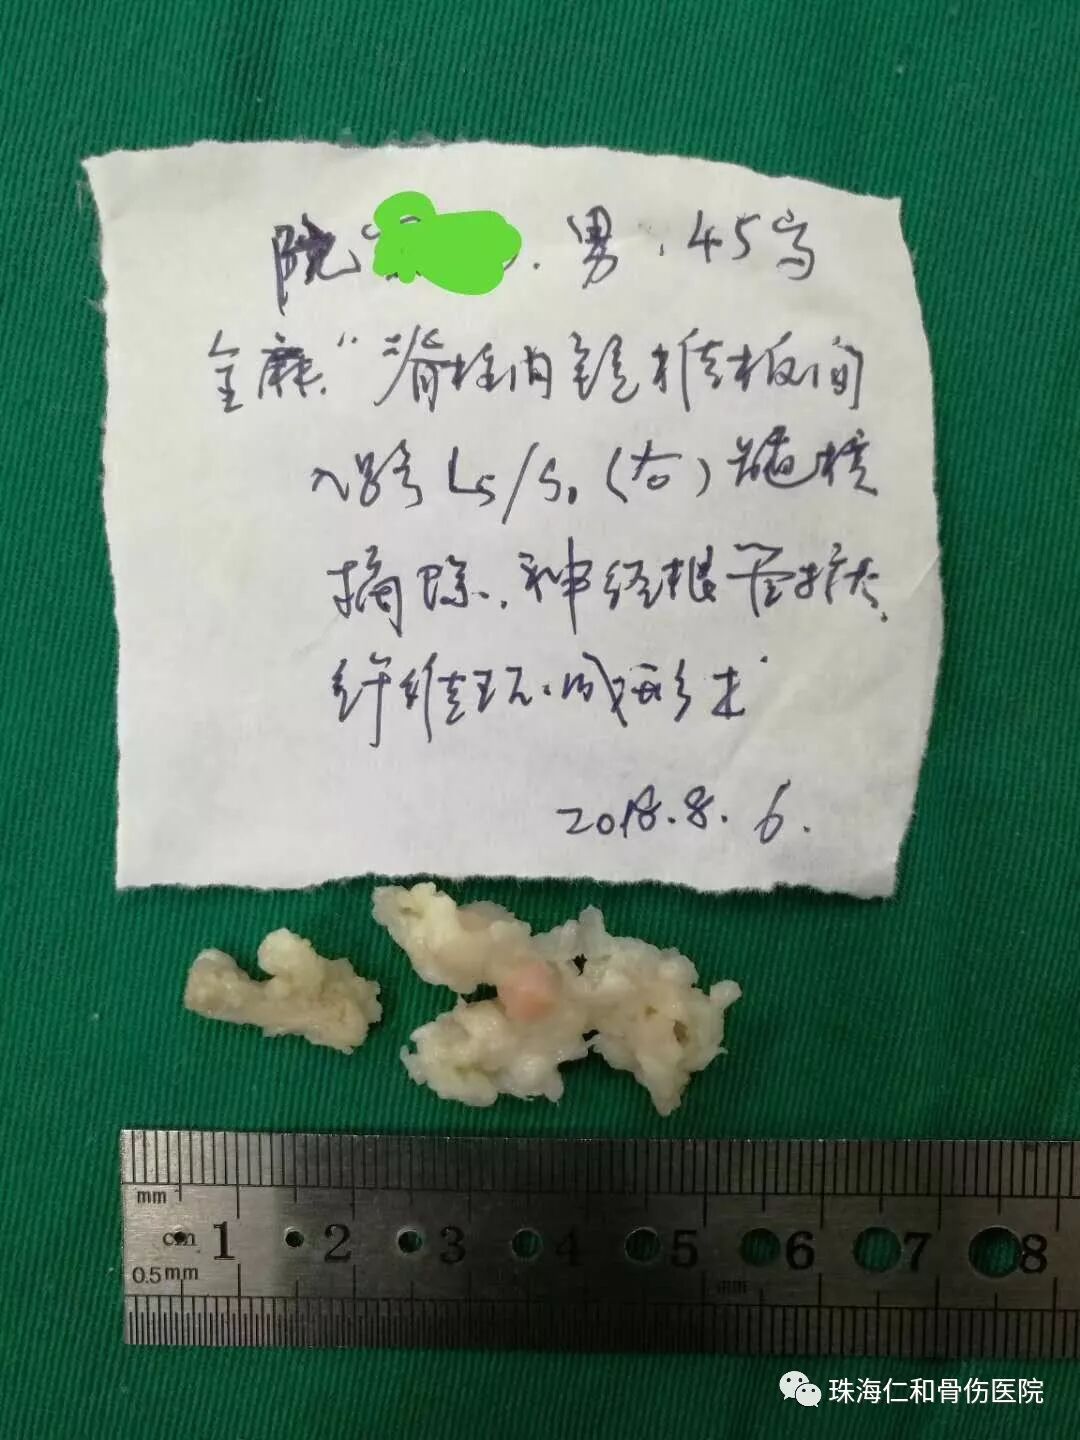 阮 . 男 . 45岁
全麻."脊柱内镜椎板间
入路L5/S1(右)髓核
摘除.神经根管扩大.
纤维环.成形术"
2018.8.6.
mm
cm 1 2 3 4 5 6 7 8
0.5mm
mm
珠海仁和骨伤医院